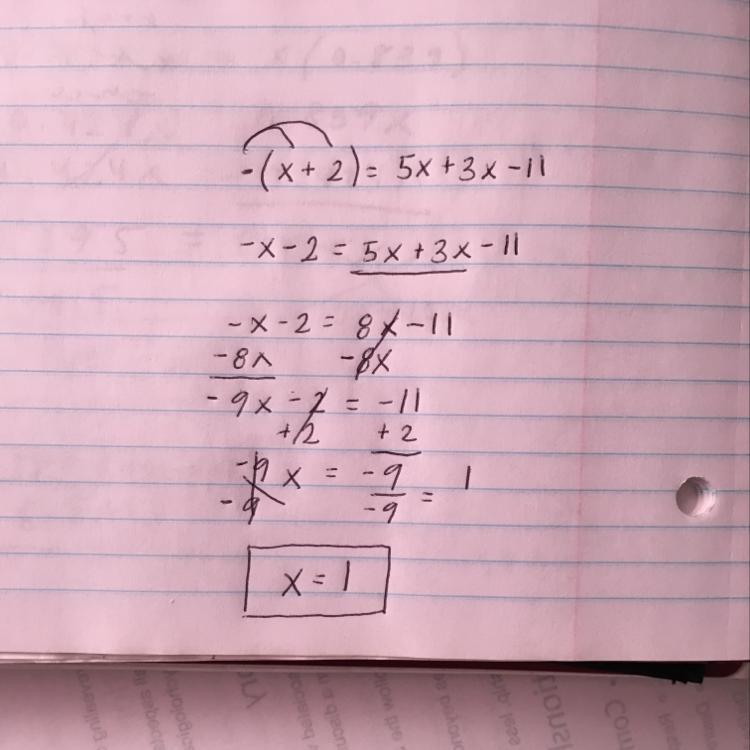 -(x+2)= 5x+3x-11
-x-2 = 5x+3x-11
-x-2= 8x-11
-8x -8x
-9x-2 = -11
+2 +2
-9x = -9 = 1
-9 -9
x=1